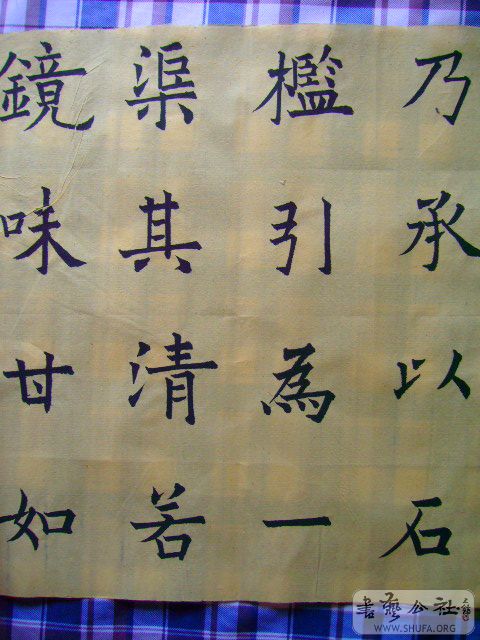 乃承以石
檻引為一
渠其清若
鏡味甘如
書藝公社
WWW.SHUFA.ORG